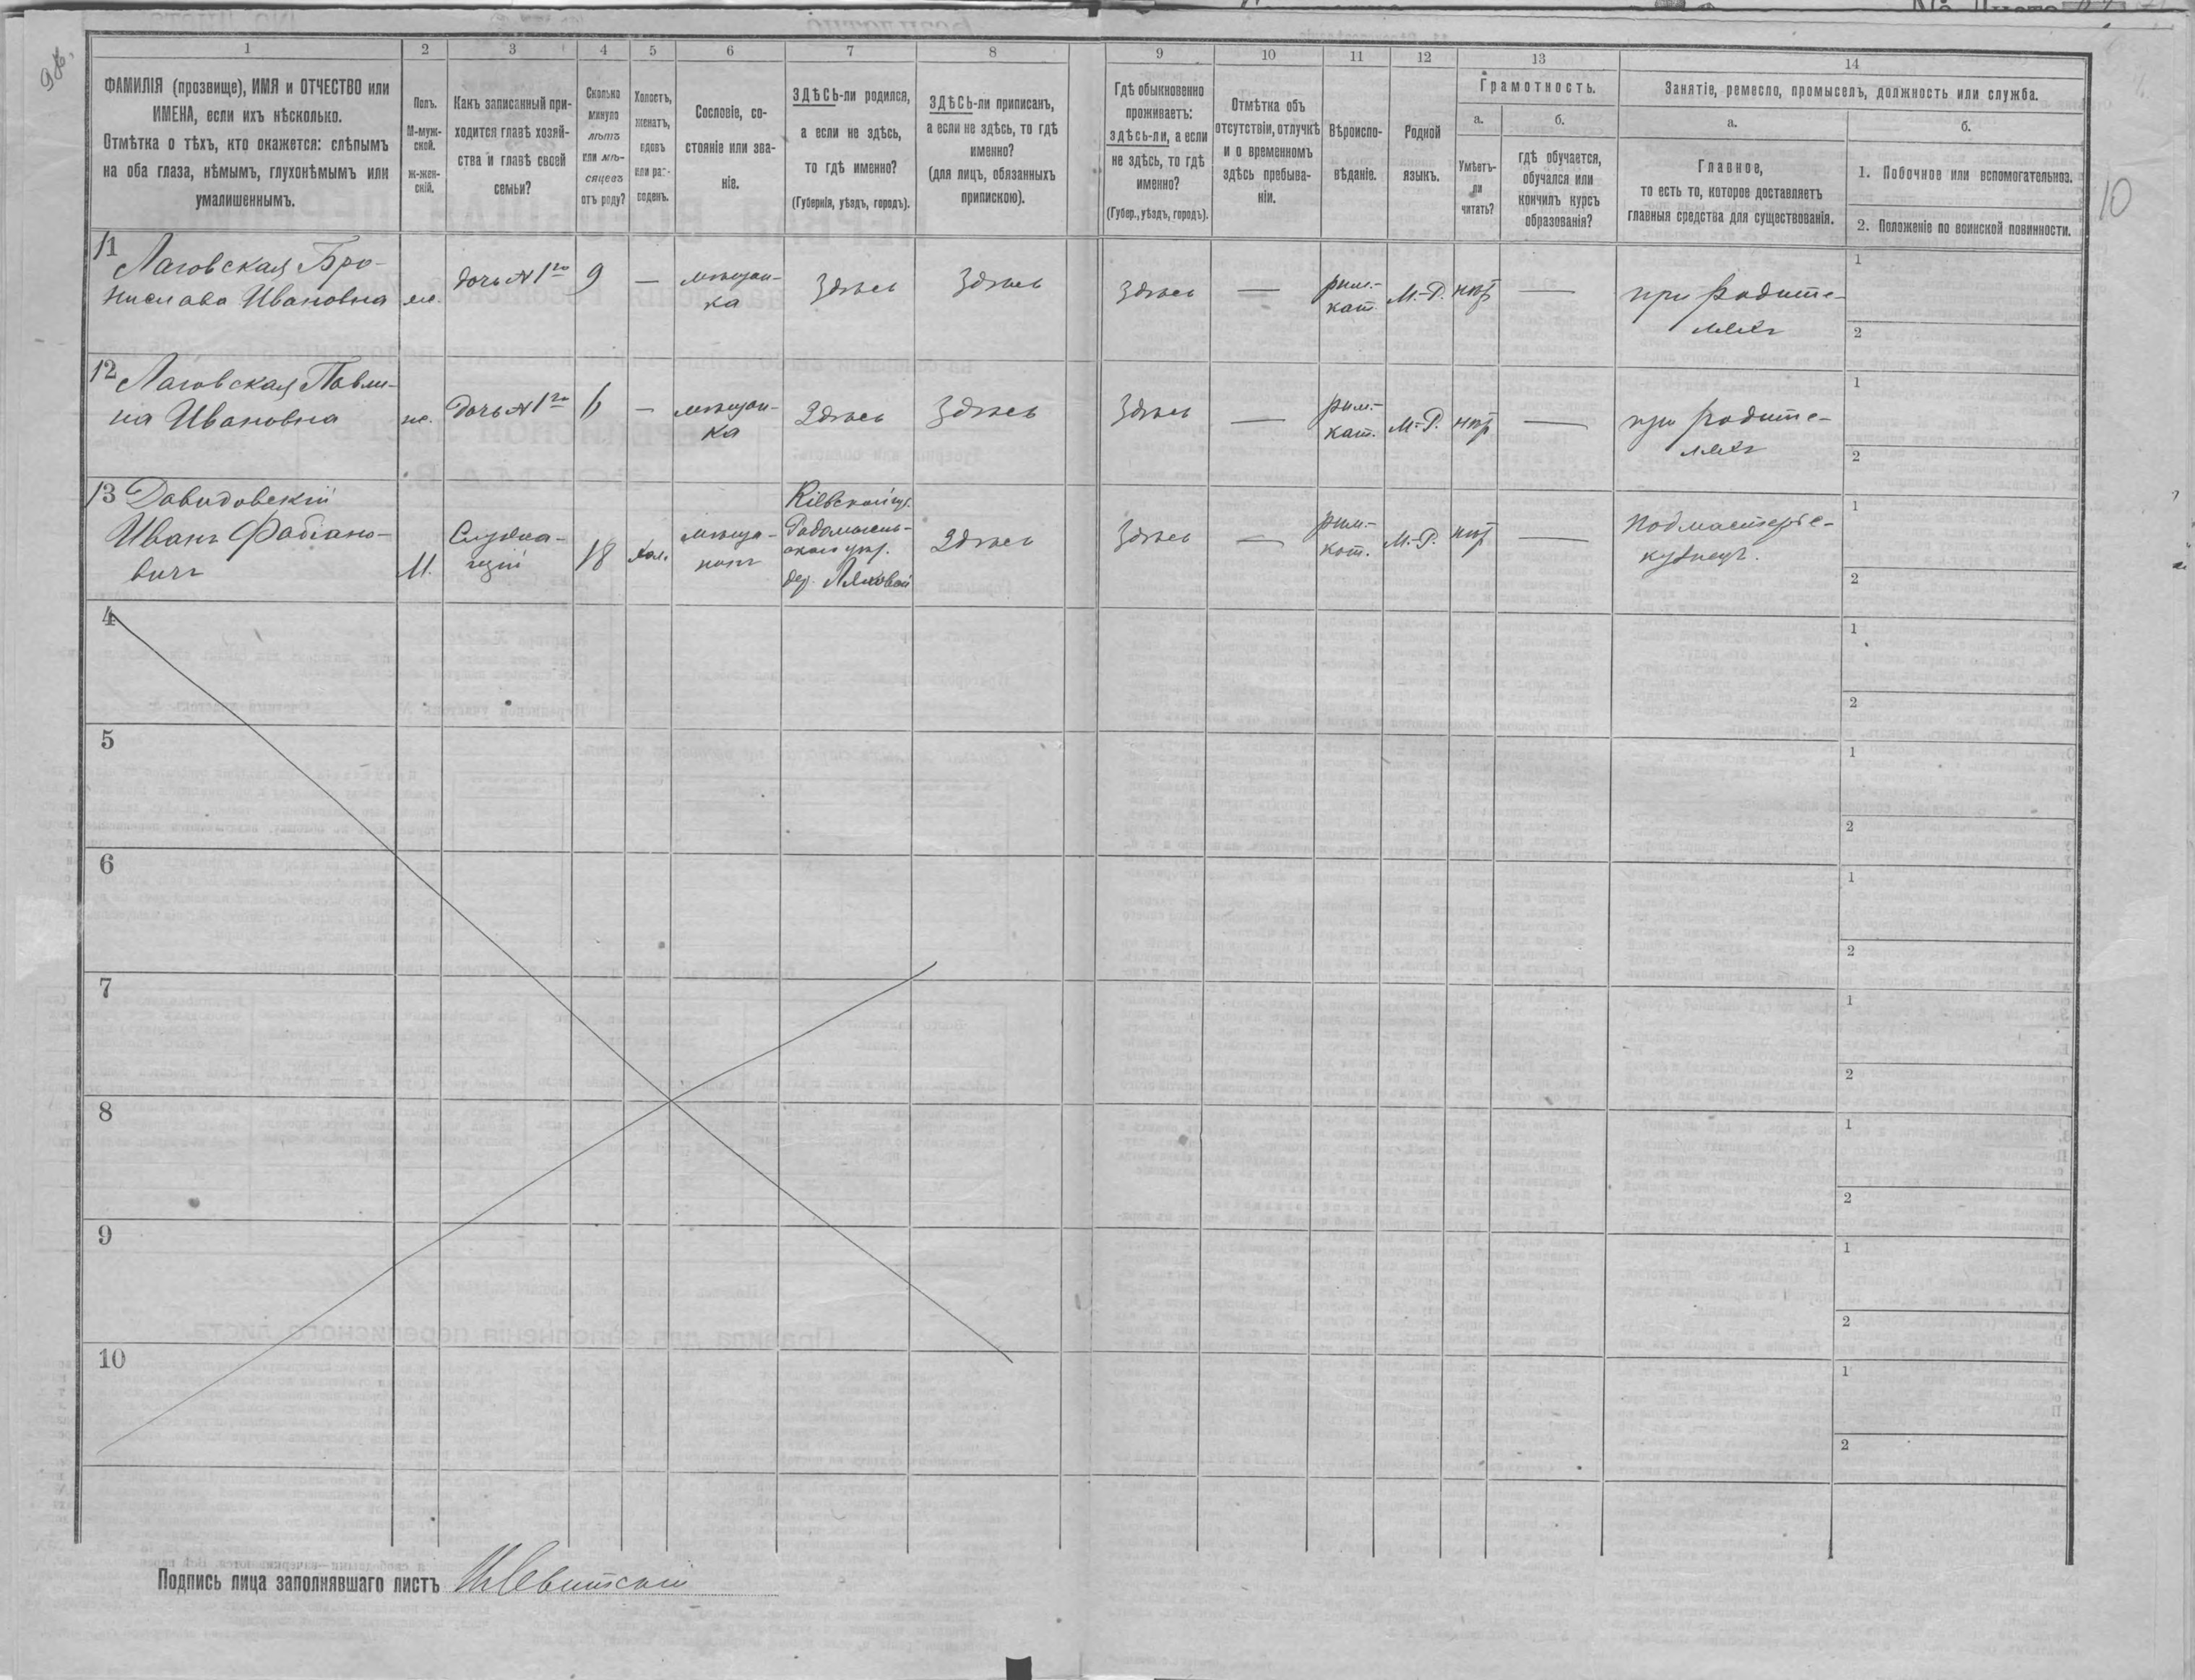 1 2 3 4 5 6 7 8 9 10 11 12 13 14
ФАМИЛІЯ (прозвище), ИМЯ и ОТЧЕСТВО или
ИМЕНА, если ихъ нѣсколько.
Отмѣтка о тѣхъ, кто окажется: слѣпымъ
на оба глаза, нѣмымъ, глухонѣмымъ или
умалишеннымъ.
Полъ.
М-муж-
ской.
ж-жен-
скій.
Какъ записанный при-
ходится главѣ хозяй-
ства и главѣ своей
семьи?
Сколько
минуло
лѣтъ
или мѣ-
сяцевъ
отъ роду?
Холостъ,
женатъ,
вдовъ
или раз-
веденъ.
Сословіе, со-
стояніе или зва-
ніе.
ЗДѢСЬ-ли родился,
а если не здѣсь,
то гдѣ именно?
(Губернія, уѣздъ, городъ).
ЗДѢСЬ-ли приписанъ,
а если не здѣсь, то гдѣ
именно?
(для лицъ, обязанныхъ
припискою).
Гдѣ обыкновенно
проживаетъ:
здѣсь-ли, а если
не здѣсь, то гдѣ
именно?
(Губер., уѣздъ, городъ).
Отмѣтка объ
отсутствіи, отлучкѣ
и о временномъ
здѣсь пребыва-
ніи.
Вѣроиспо-
вѣданіе.
Родной
языкъ.
Грамотность.
а.
Умѣетъ-
ли
читать?
б.
гдѣ обучается,
обучался или
кончилъ курсъ
образованія?
Занятіе, ремесло, промыселъ, должность или служба.
а.
Главное,
то есть то, которое доставляетъ
главныя средства для существованія.
б.
1. Побочное или вспомогательное.
2. Положеніе по воинской повинности.
10
11
Лаговская Бро-
нислава Ивановна
же.
дочь №1го
9
—
мѣщан-
ка
Здѣсь
Здѣсь
Здѣсь
—
рим.-
кат.
М.-Р.
нѣтъ
—
при родите-
ляхъ
1
2
12
Лаговская Павли-
на Ивановна
же.
Дочь №1го
6
—
мѣщан-
ка
Здѣсь
Здѣсь
Здѣсь
—
рим.-
кат.
М.-Р.
нѣтъ
—
при родите-
ляхъ
1
2
13
Давидовскій
Иванъ Фабіано-
вичъ
М.
Служа-
щій
18
хол.
мѣща-
нинъ
Кіевской гу.
Радомысль-
скаго уѣз.
дер.
Здѣсь
Здѣсь
—
рим.-
кат.
М.-Р.
нѣтъ
—
Подмастерье-
кузнецъ.
1
2
4
1
2
5
1
2
6
1
2
7
1
2
8
1
2
9
1
2
10
1
2
Подпись лица заполнявшаго листъ